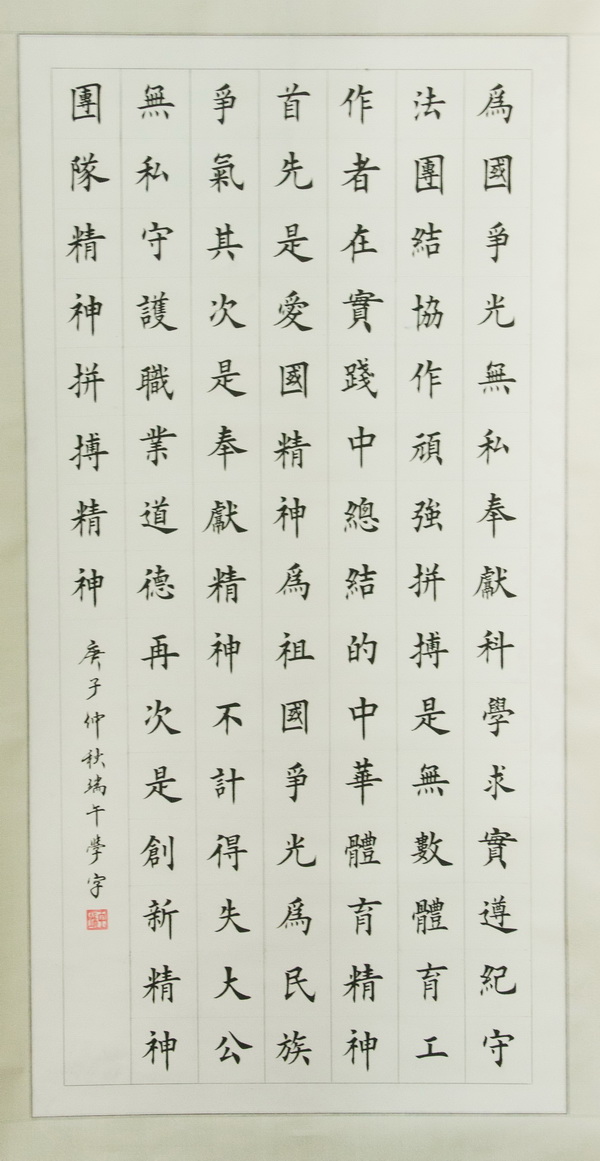 爲國爭光無私奉獻科學求實遵紀守
法團結協作頑強拼搏是無數體育工
作者在實踐中總結的中華體育精神
首先是愛國精神爲祖國爭光爲民族
爭氣其次是奉獻精神不計得失大公
無私守護職業道德再次是創新精神
團隊精神拼搏精神
庚子仲秋瑞午學字